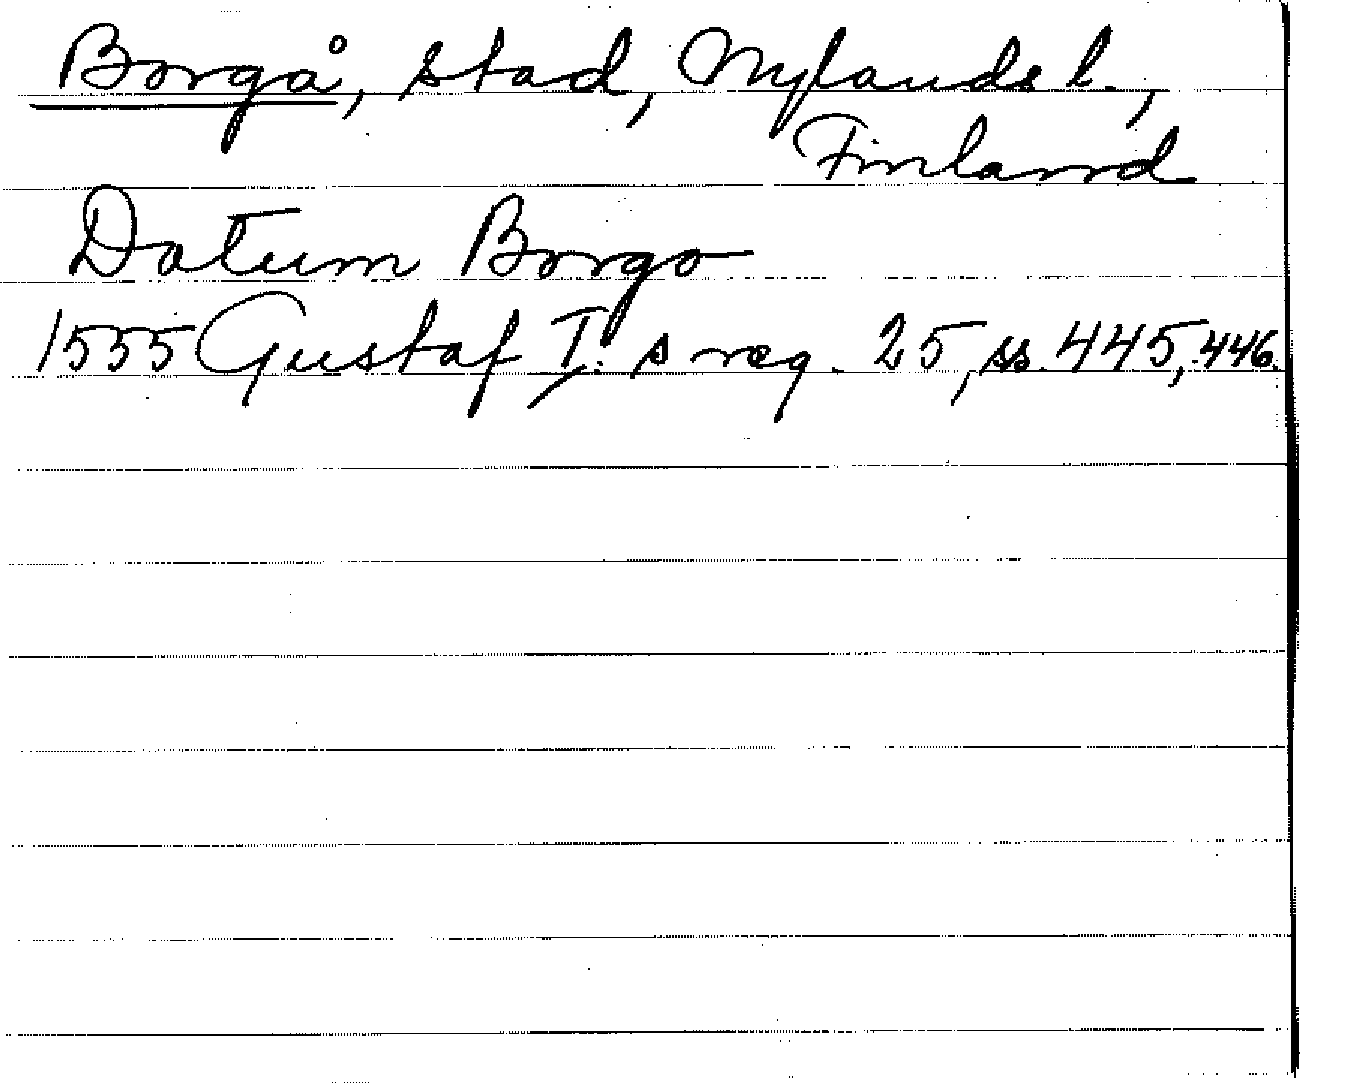 Borgå, stad, Nylands l.,
Finland
Datum Borgo
1555 Gustaf I:s reg. 25, ss. 445, 446.